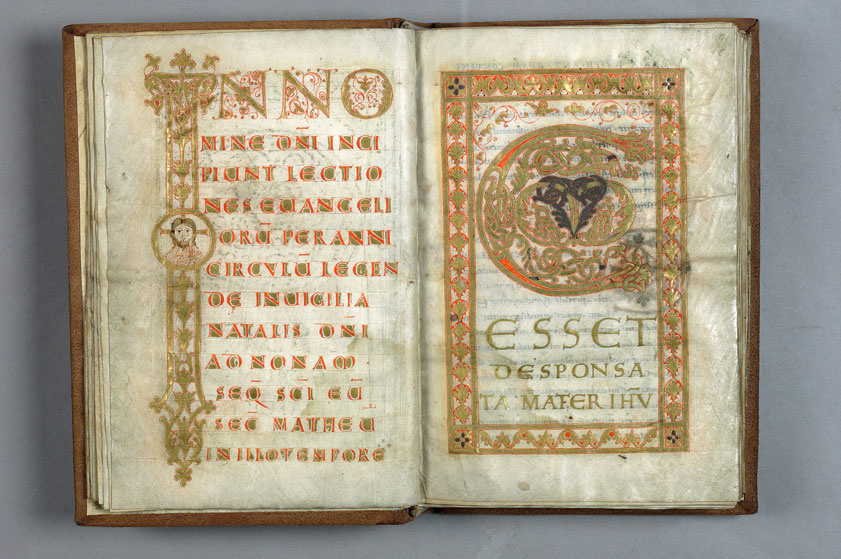 INNO
MINE DN̄I INCI
PIUNT LECTIO
NES EUANGELI
ORŪ PER ANNI
CIRCULŪ LEGEN
DĘ IN UIGILIA
NATALIS DN̄I
AD NONAM ·
SEQ̄ SC̄I EŪ
SEC̄ MATHEŪ
IN ILLO TEMPORE
C
ESSET
DESPONSA
TA MATER IHV̄